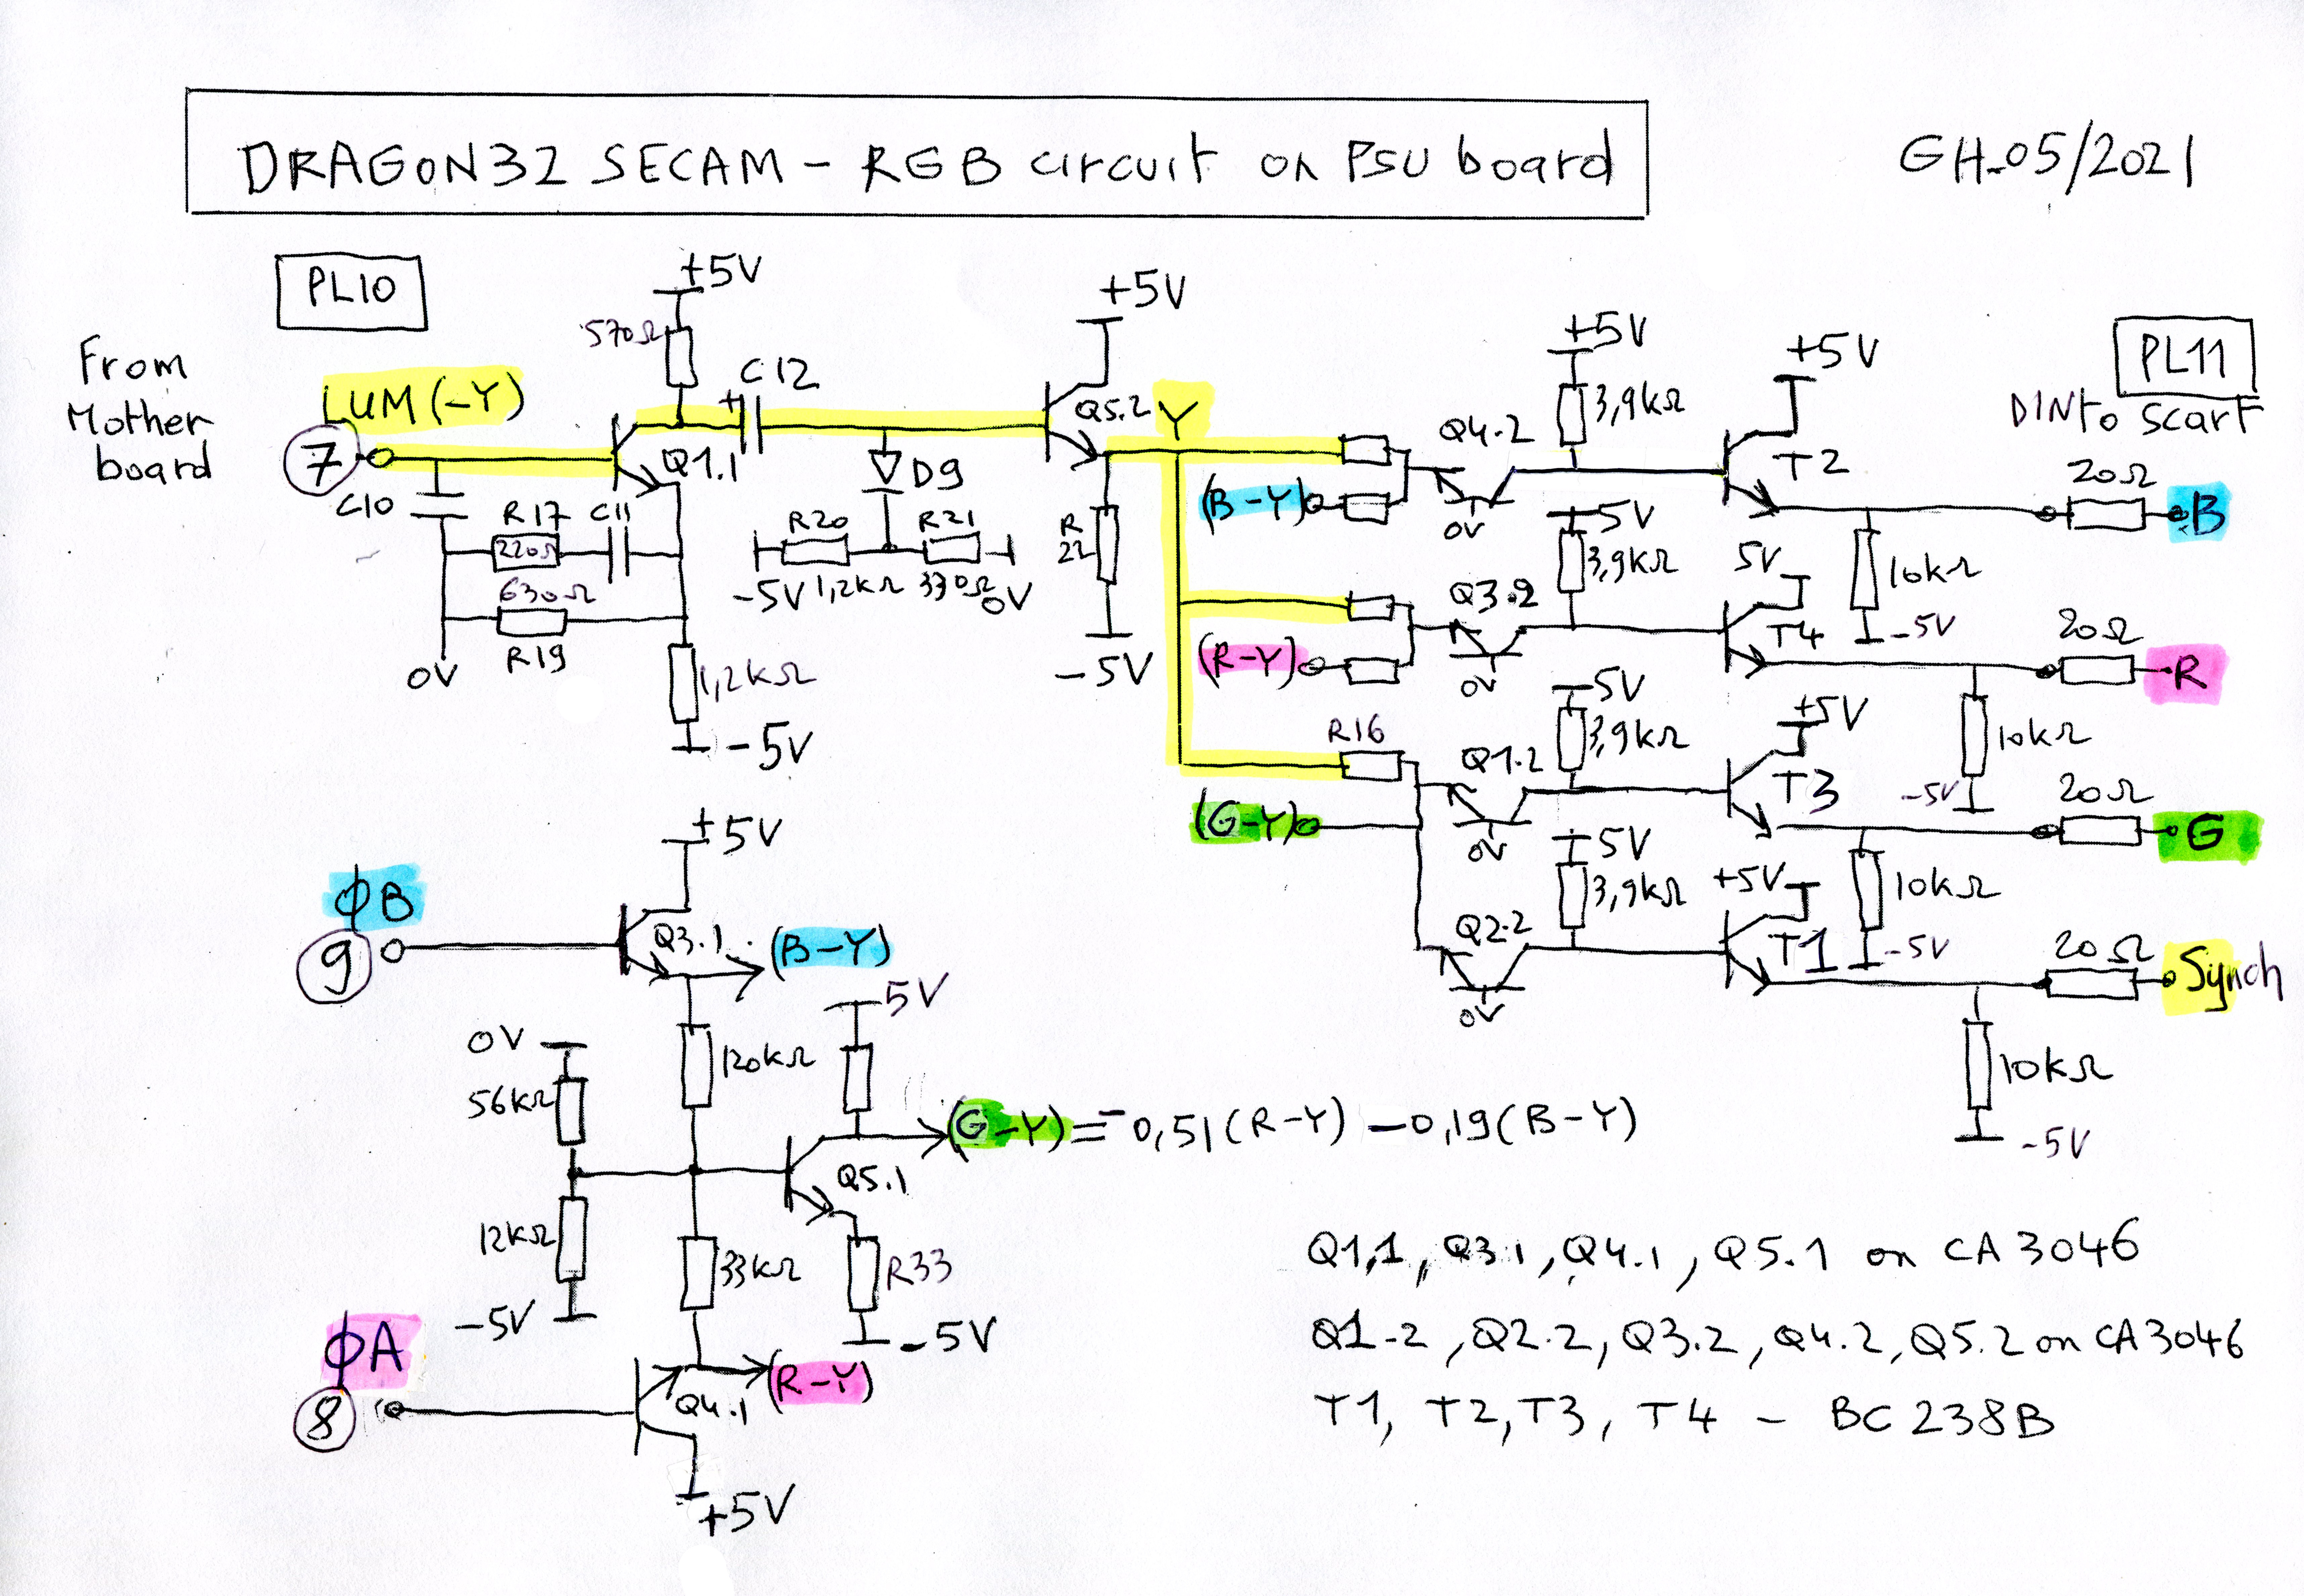 DRAGON32 SECAM - RGB circuit on PSU board
GH-05/2021
PL10
From
Mother
board
LUM (-Y)
7
+5V
570Ω
C12
Q1.1
C10
R17
220Ω
C11
630Ω
R19
0V
1,2kΩ
-5V
D9
R20
R21
-5V 1,2kΩ 330Ω 0V
+5V
Q5.2
Y
R
22
-5V
(B-Y)
Q4.2
0V
+5V
3,9kΩ
+5V
T2
10kΩ
-5V
PL11
DIN to scart
20Ω
B
(R-Y)
Q3.2
0V
5V
3,9kΩ
5V
T4
10kΩ
-5V
20Ω
R
R16
(G-Y)
Q1.2
0V
5V
3,9kΩ
+5V
T3
10kΩ
-5V
20Ω
G
Q2.2
0V
5V
3,9kΩ
+5V
T1
10kΩ
-5V
20Ω
Synch
ϕB
9
+5V
Q3.1
(B-Y)
120kΩ
0V
56kΩ
12kΩ
-5V
5V
(G-Y) = -0,51(R-Y) -0,19(B-Y)
Q5.1
33kΩ
R33
-5V
ϕA
8
Q4.1
(R-Y)
+5V
Q1,1, Q3.1, Q4.1, Q5.1 on CA 3046
Q1-2, Q2.2, Q3.2, Q4.2, Q5.2 on CA3046
T1, T2, T3, T4 - BC 238B